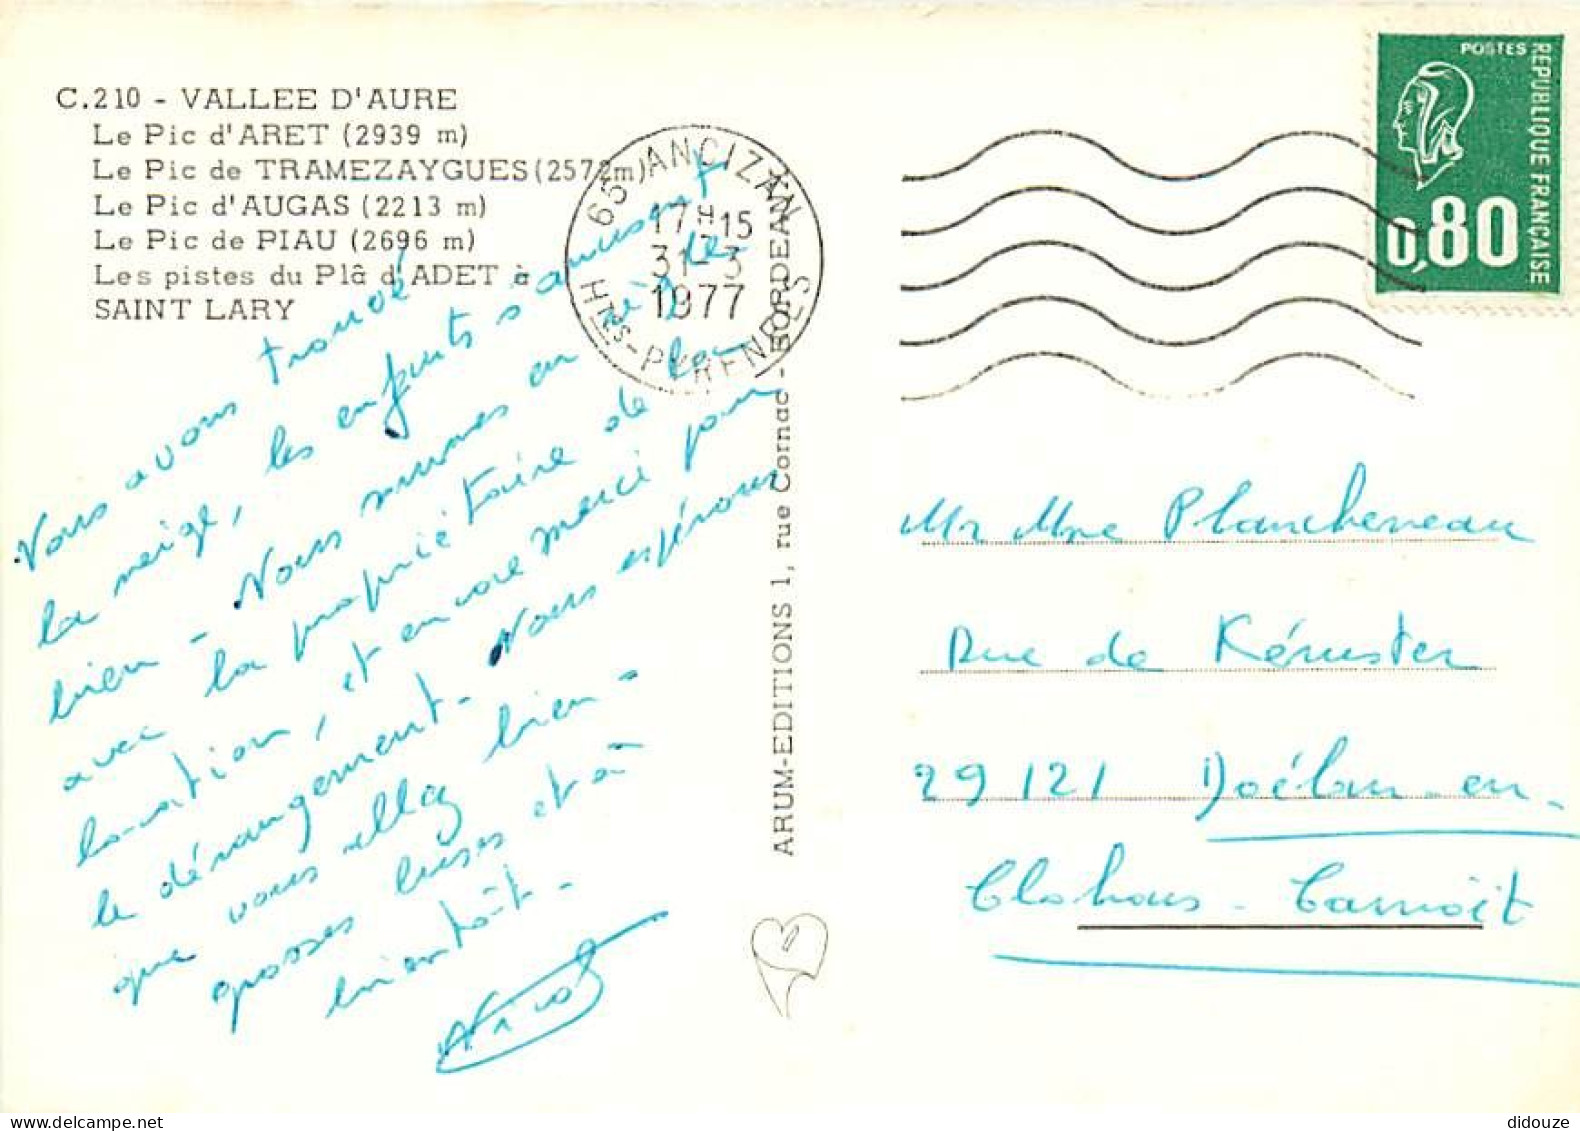 C.210 - VALLEE D'AURE
Le Pic d'ARET (2939 m)
Le Pic de TRAMEZAYGUES (2572m)
Le Pic d'AUGAS (2213 m)
Le Pic de PIAU (2696 m)
Les pistes du Plâ d'ADET à
SAINT LARY
Nous avons trouvé
la neige, les enfants s'amusent
bien - Nous sommes en règle
avec la propriétaire de la
location, et encore merci pour
le dérangement - Nous espérons
que vous allez bien -
grosses bises et à
bientôt -
Nicole
ARUM-EDITIONS 1, rue Cornac - BORDEAUX
65 ANCIZAN
17H15
31-3
1977
HTES-PYRENEES
POSTES
REPUBLIQUE FRANÇAISE
0,80
Mr Mme Plancheneau
Rue de Kéruster
29121 Doélan-en-
Clohars - Carnoët
didouze